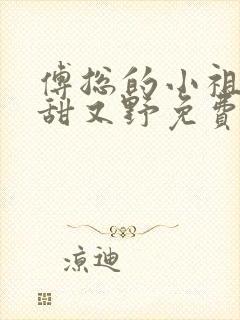 傅总的小祖
甜又野免費
凉迪